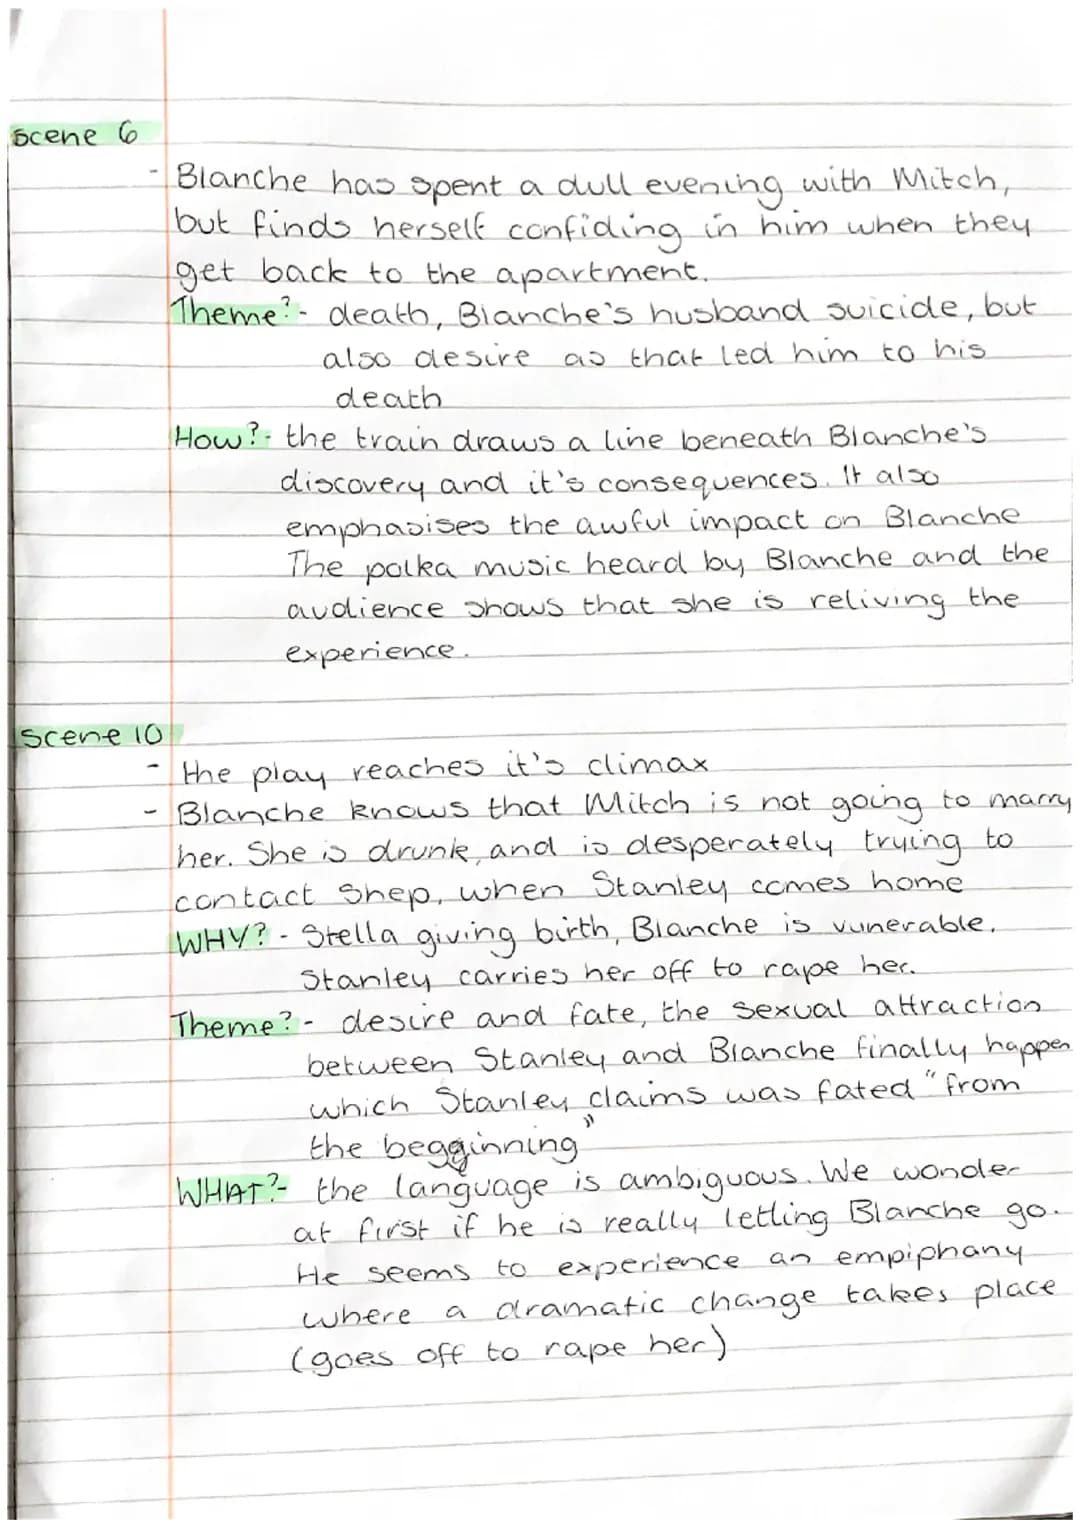 Scene 6
- Blanche has spent a dull evening with Mitch,
but finds herself confiding in him when they
get back to the apartment.
Theme?- death, Blanche's husband suicide, but
also desire as that led him to his
death
How?- the train draws a line beneath Blanche's
discovery and it's consequences. It also
emphasises the awful impact on Blanche
The polka music heard by Blanche and the
audience shows that she is reliving the
experience.
Scene 10
- the play reaches it's climax
- Blanche knows that Mitch is not going to marry
her. She is drunk, and is desperately trying to
contact Shep, when Stanley comes home
WHY? - Stella giving birth, Blanche is vunerable.
Stanley carries her off to rape her.
Theme? - desire and fate, the sexual attraction
between Stanley and Blanche finally happen
which Stanley claims was fated "from
the begginning"
WHAT?- the language is ambiguous. We wonder
at first if he is really letting Blanche go.
He seems to experience an empiphany
where a dramatic change takes place
(goes off to rape her)